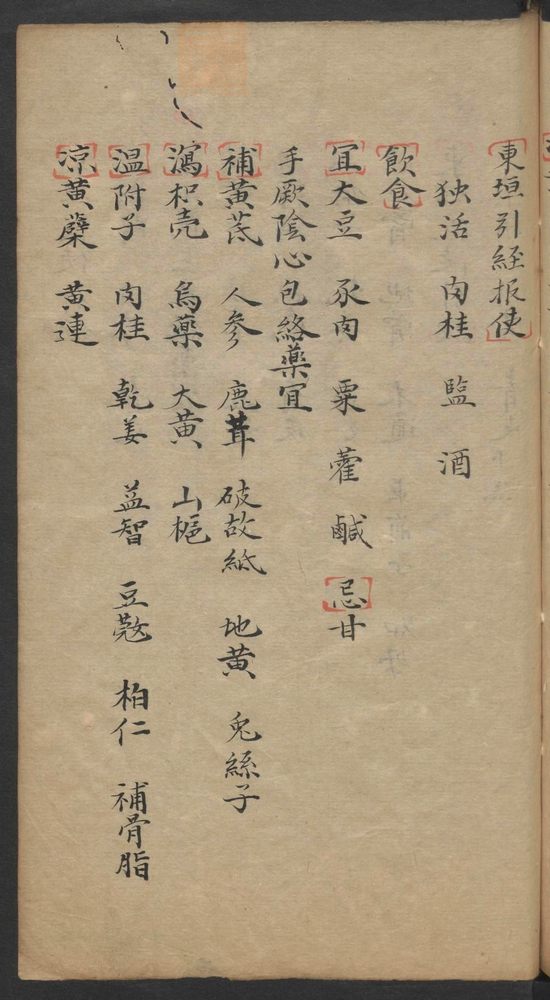 東垣引経报使
独活 肉桂 監 酒
飲食
宜大豆 豕肉 粟 藿 鹹 忌甘
手厥陰心包絡藥宜
補黄芪 人参 鹿茸 破故紙 地黄 兎絲子
瀉枳壳 烏藥 大黄 山梔
温附子 肉桂 乾姜 益智 豆蔲 柏仁 補骨脂
凉黄蘗 黄連